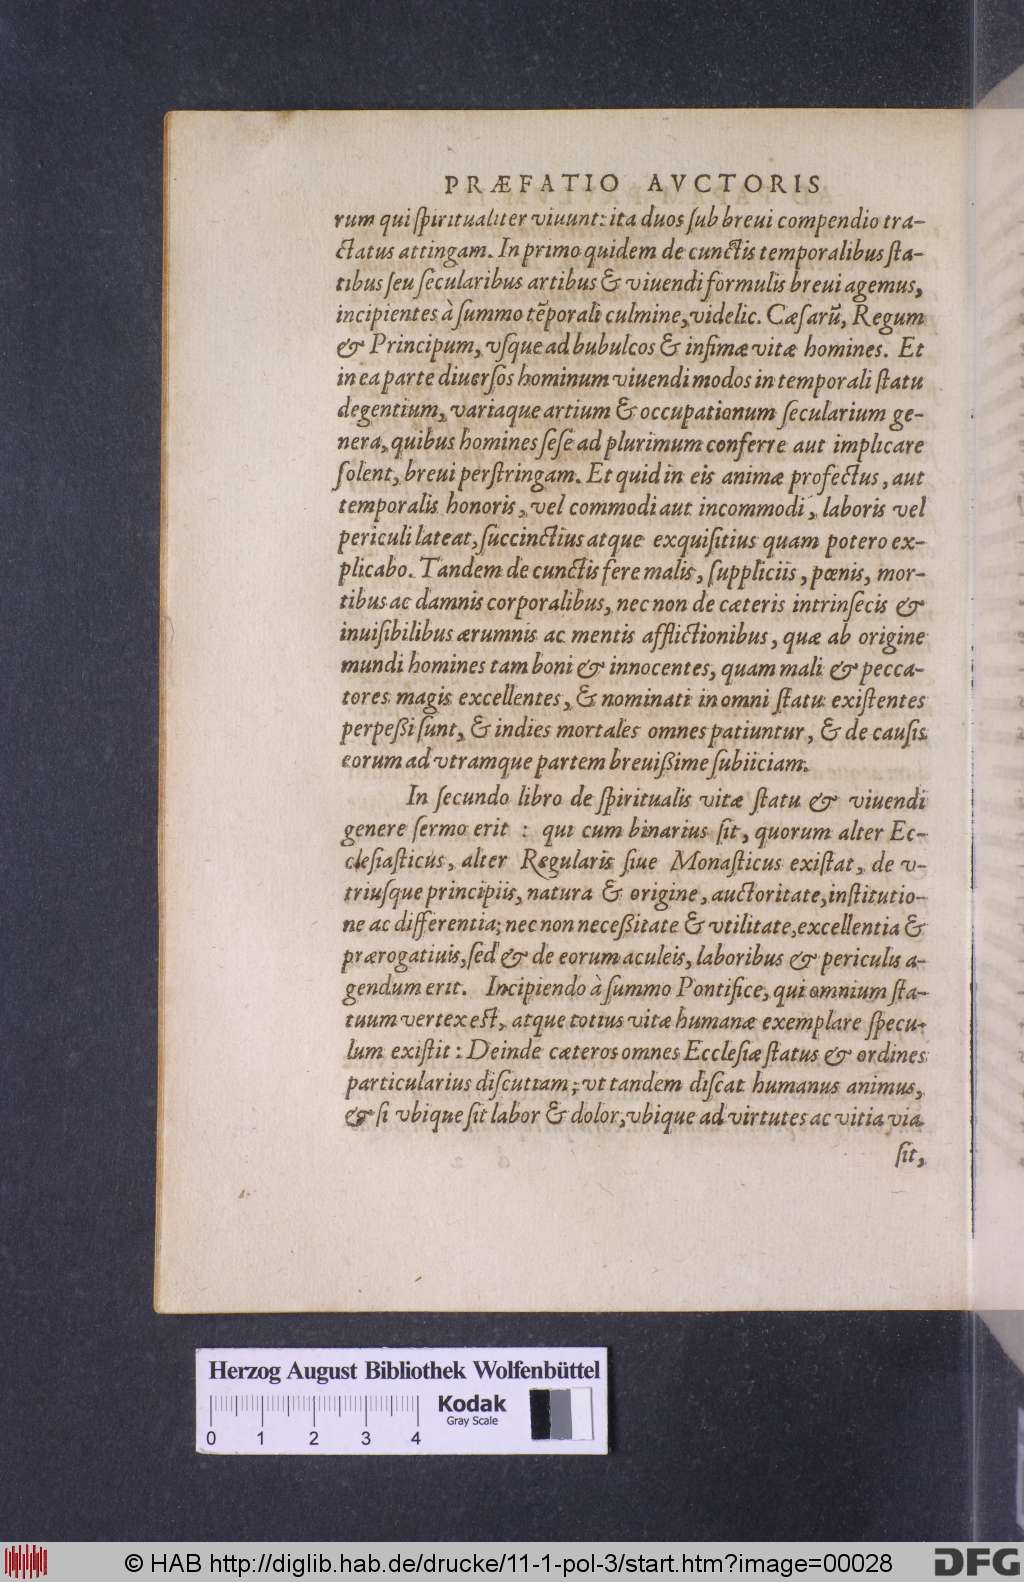 PRÆFATIO AVCTORIS
rum qui ſpiritualiter viuunt: ita duos ſub breui compendio tra-
ctatus attingam. In primo quidem de cunctis temporalibus ſta-
tibus ſeu ſecularibus artibus & viuendi formulis breui agemus,
incipientes à ſummo tẽporali culmine, videlic. Cæſarũ, Regum
& Principum, vſque ad bubulcos & infimæ vitæ homines. Et
in ea parte diuerſos hominum viuendi modos in temporali ſtatu
degentium, variaque artium & occupationum ſecularium ge-
nera, quibus homines ſeſe ad plurimum conferre aut implicare
ſolent, breui perſtringam. Et quid in eis animæ profectus, aut
temporalis honoris, vel commodi aut incommodi, laboris vel
periculi lateat, ſuccinctius atque exquiſitius quam potero ex-
plicabo. Tandem de cunctis fere malis, ſuppliciis, pœnis, mor-
tibus ac damnis corporalibus, nec non de cæteris intrinſecis &
inuiſibilibus ærumnis ac mentis afflictionibus, quæ ab origine
mundi homines tam boni & innocentes, quam mali & pecca-
tores magis excellentes, & nominati in omni ſtatu exiſtentes
perpeßi ſunt, & indies mortales omnes patiuntur, & de cauſis
eorum ad vtramque partem breuißime ſubiiciam.
In ſecundo libro de ſpiritualis vitæ ſtatu & viuendi
genere ſermo erit : qui cum binarius ſit, quorum alter Ec-
cleſiaſticus, alter Regularis ſiue Monaſticus exiſtat, de v-
triuſque principiis, natura & origine, auctoritate, inſtitutio-
ne ac differentia; nec non neceßitate & vtilitate, excellentia &
prærogatiuis, ſed & de eorum aculeis, laboribus & periculis a-
gendum erit. Incipiendo à ſummo Pontifice, qui omnium ſta-
tuum vertex eſt, atque totius vitæ humanæ exemplare ſpecu-
lum exiſtit: Deinde cæteros omnes Eccleſiæ ſtatus & ordines
particularius diſcutiam; vt tandem diſcat humanus animus,
& ſi vbique ſit labor & dolor, vbique ad virtutes ac vitia via
ſit,
Herzog August Bibliothek Wolfenbüttel
Kodak
Gray Scale
0 1 2 3 4
© HAB http://diglib.hab.de/drucke/11-1-pol-3/start.htm?image=00028
DFG